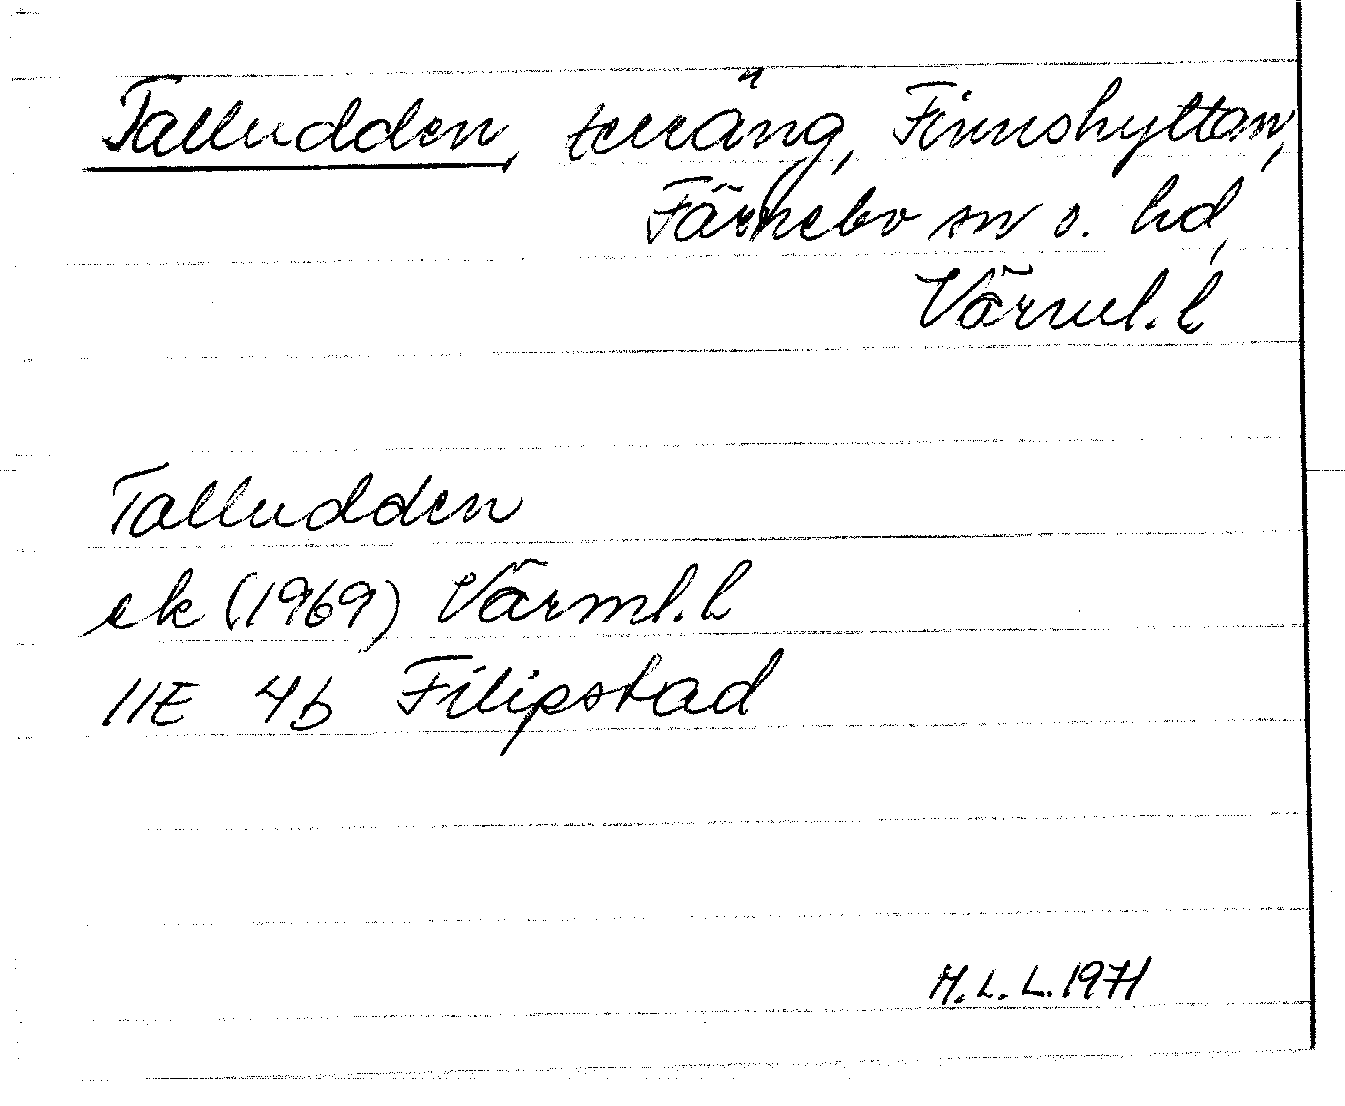 Talludden, terräng, Finnshyttan,
Färnebo sn o. hd,
Värml. l
Talludden
ek (1969) Värml. l
11E 4b Filipstad
M. L. L. 1971